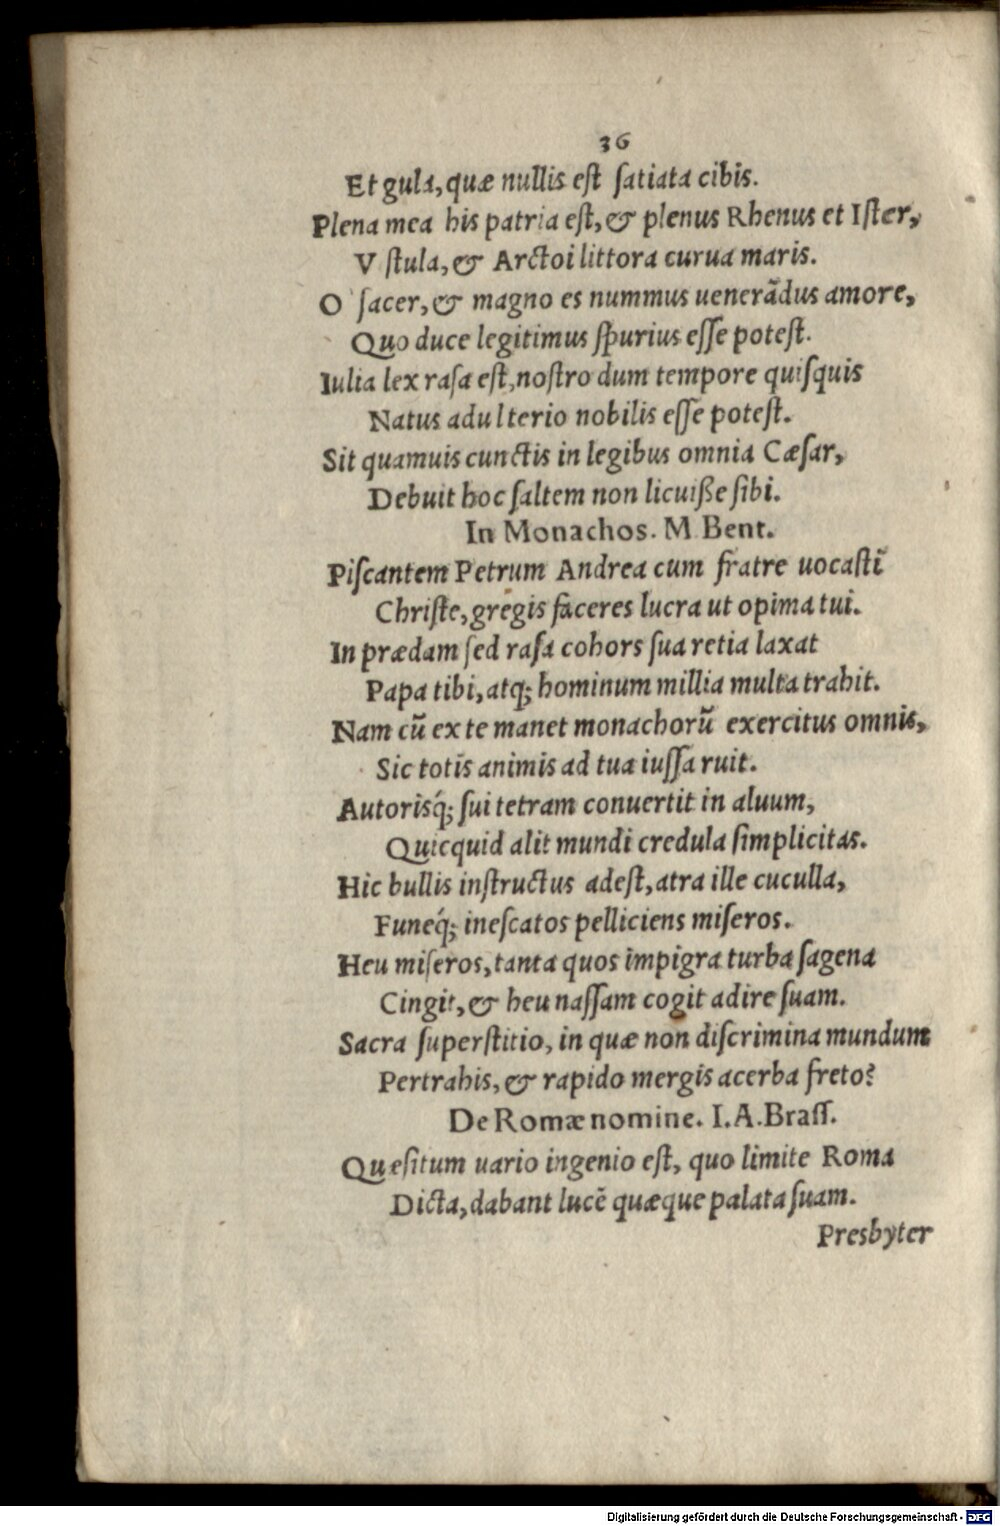 36
Et gula, quæ nullis eſt ſatiata cibis.
Plena mea his patria eſt, & plenus Rhenus et Iſter,
V ſtula, & Arctoi littora curua maris.
O ſacer, & magno es nummus uenerãdus amore,
Quo duce legitimus ſpurius eſſe poteſt.
Iulia lex raſa eſt, noſtro dum tempore quiſquis
Natus adulterio nobilis eſſe poteſt.
Sit quamuis cunctis in legibus omnia Cæſar,
Debuit hoc ſaltem non licuiße ſibi.
In Monachos. M Bent.
Piſcantem Petrum Andrea cum fratre uocaſti
Chriſte, gregis faceres lucra ut opima tui.
In prædam ſed raſa cohors ſua retia laxat
Papa tibi, atq; hominum millia multa trahit.
Nam cũ ex te manet monachorũ exercitus omnis,
Sic totis animis ad tua iuſſa ruit.
Autorisq́; ſui tetram conuertit in aluum,
Quicquid alit mundi credula ſimplicitas.
Hic bullis inſtructus adeſt, atra ille cuculla,
Funeq́; ineſcatos pelliciens miſeros.
Heu miſeros, tanta quos impigra turba ſagena
Cingit, & heu naſſam cogit adire ſuam.
Sacra ſuperſtitio, in quæ non diſcrimina mundum
Pertrahis, & rapido mergis acerba freto?
De Romæ nomine. I. A. Braſſ.
Quæſitum uario ingenio eſt, quo limite Roma
Dicta, dabant lucẽ quæque palata ſuam.
Presbyter
Digitalisierung gefördert durch die Deutsche Forschungsgemeinschaft - DFG